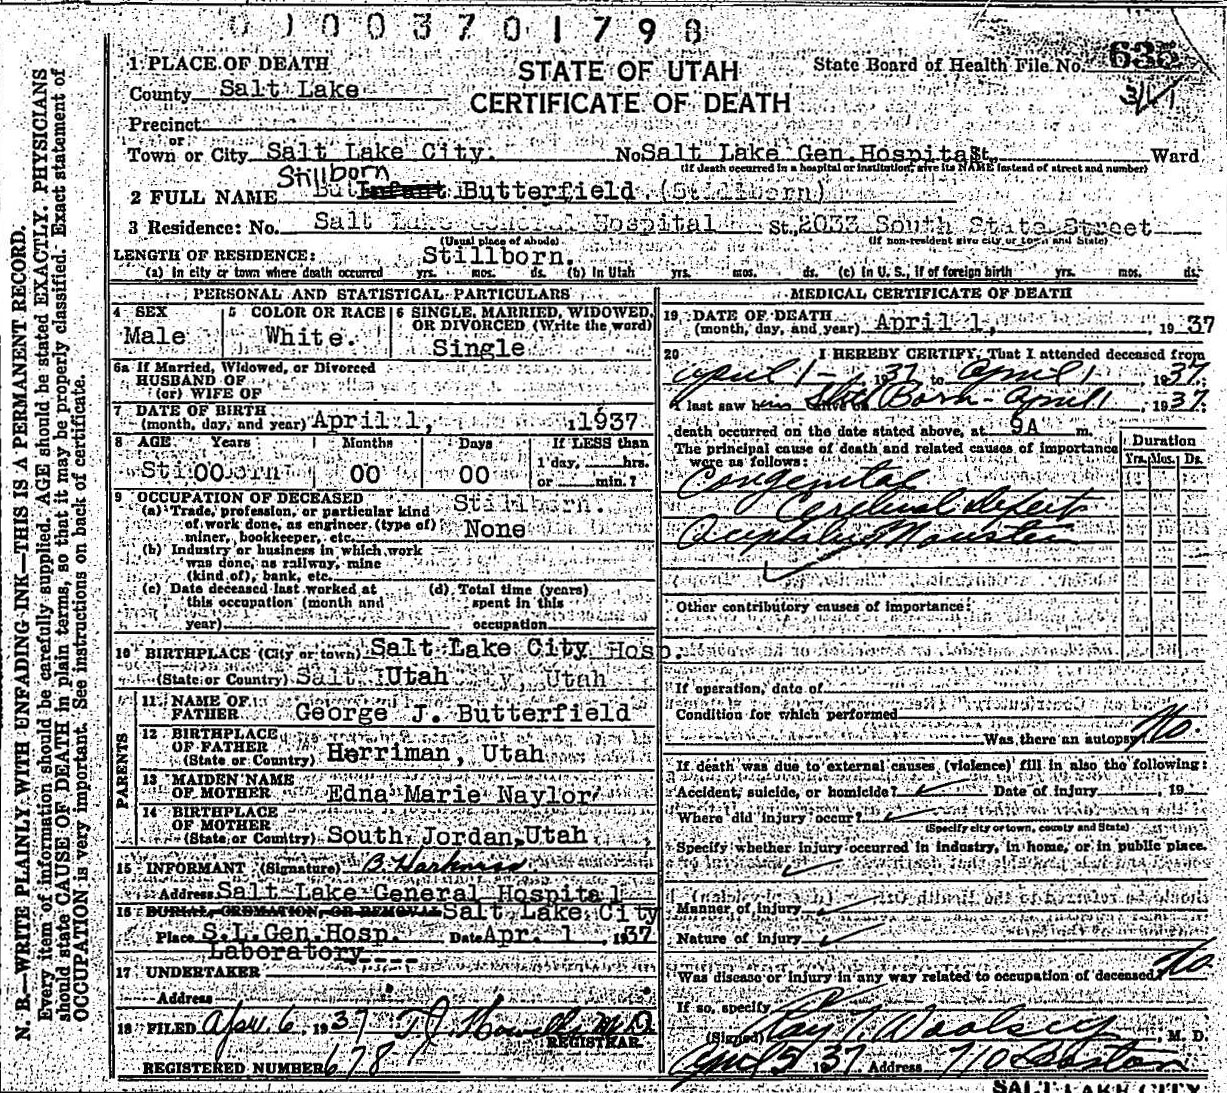 0 1 0 0 3 7 0 1 7 9 8
1 PLACE OF DEATH
STATE OF UTAH
CERTIFICATE OF DEATH
State Board of Health File No. 635
County Salt Lake
Precinct
or
Town or City Salt Lake City. No Salt Lake Gen. Hospital St. Ward
(If death occurred in a hospital or institution, give its NAME instead of street and number)
Stillborn
2 FULL NAME Infant Butterfield (Stillborn)
3 Residence: No. Salt Lake General Hospital St., 2033 South State Street
(Usual place of abode) (If non-resident give city or town and State)
LENGTH OF RESIDENCE: Stillborn.
(a) In city or town where death occurred yrs. mos. ds. (b) In Utah yrs. mos. ds. (c) In U. S., if of foreign birth yrs. mos. ds.
PERSONAL AND STATISTICAL PARTICULARS
4 SEX
Male
5 COLOR OR RACE
White.
6 SINGLE, MARRIED, WIDOWED, OR DIVORCED (Write the word)
Single
6a If Married, Widowed, or Divorced
HUSBAND OF
(or) WIFE OF
7 DATE OF BIRTH
(month, day, and year) April 1, 1937
8 AGE Years Months Days If LESS than
Stillborn 00 00 00 1 day, hrs.
or min.?
9 OCCUPATION OF DECEASED Stillborn.
(a) Trade, profession, or particular kind
of work done, as engineer (type of) None
miner, bookkeeper, etc.
(b) Industry or business in which work
was done, as railway, mine
(kind of), bank, etc.
(c) Date deceased last worked at
this occupation (month and
year)
(d) Total time (years)
spent in this
occupation
10 BIRTHPLACE (City or town) Salt Lake City Hosp.
(State or Country) Utah Utah
PARENTS
11 NAME OF
FATHER George J. Butterfield
12 BIRTHPLACE
OF FATHER
(State or Country) Herriman, Utah
13 MAIDEN NAME
OF MOTHER Edna Marie Naylor
14 BIRTHPLACE
OF MOTHER
(State or Country) South Jordan, Utah
15 INFORMANT (Signature) B. Harkness
Address Salt Lake General Hospital
16 BURIAL, CREMATION, OR REMOVAL Salt Lake City
Place S.L.Gen.Hosp. Date Apr. 1, 1937
Laboratory
17 UNDERTAKER
Address
18 FILED Apr. 6, 1937 T.J. Howells M D
REGISTRAR.
REGISTERED NUMBER 678
MEDICAL CERTIFICATE OF DEATH
19 DATE OF DEATH
(month, day, and year) April 1, 1937
20 I HEREBY CERTIFY, That I attended deceased from
April 1 - 1937 to April 1, 1937.
I last saw him alive on Still Born - April 1, 1937.
death occurred on the date stated above, at 9A m.
The principal cause of death and related causes of importance
were as follows:
Duration
Yrs. Mos. Ds.
Congenital
Cerebral defect
Other contributory causes of importance:
If operation, date of
Condition for which performed
Was there an autopsy? No.
If death was due to external causes (violence) fill in also the following:
Accident, suicide, or homicide? Date of injury, 19
Where did injury occur?
(Specify city or town, county and State)
Specify whether injury occurred in industry, in home, or in public place.
Manner of injury
Nature of injury
Was disease or injury in any way related to occupation of deceased? No.
If so, specify
(Signed) Roy T Woolsey, M. D.
April 5 1937. Address 710 Boston
SALT LAKE CITY
N. B.—WRITE PLAINLY WITH UNFADING INK—THIS IS A PERMANENT RECORD.
Every item of information should be carefully supplied. AGE should be stated EXACTLY. PHYSICIANS
should state CAUSE OF DEATH in plain terms, so that it may be properly classified. Exact statement of
OCCUPATION is very important. See instructions on back of certificate.